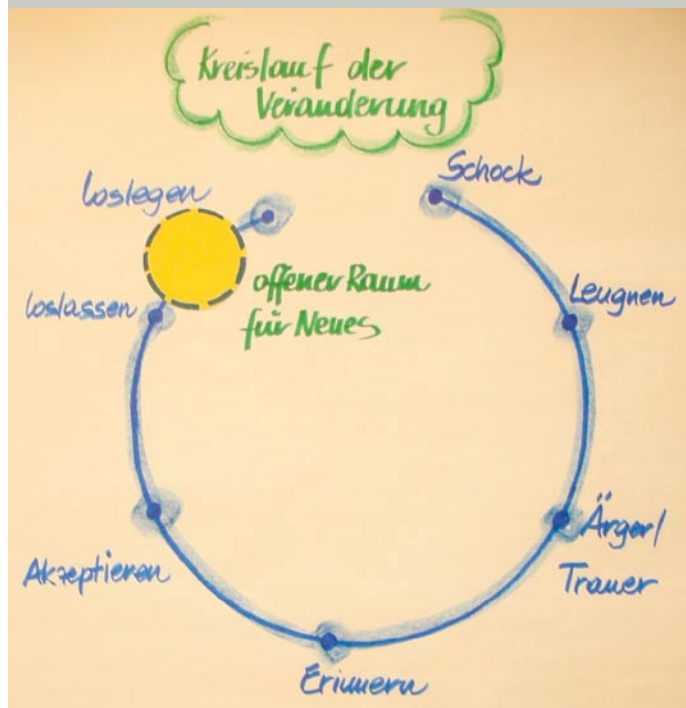 Kreislauf der
Veränderung
Schock
Leugnen
Ärger/
Trauer
Erinnern
Akzeptieren
loslassen
offener Raum
für Neues
loslegen